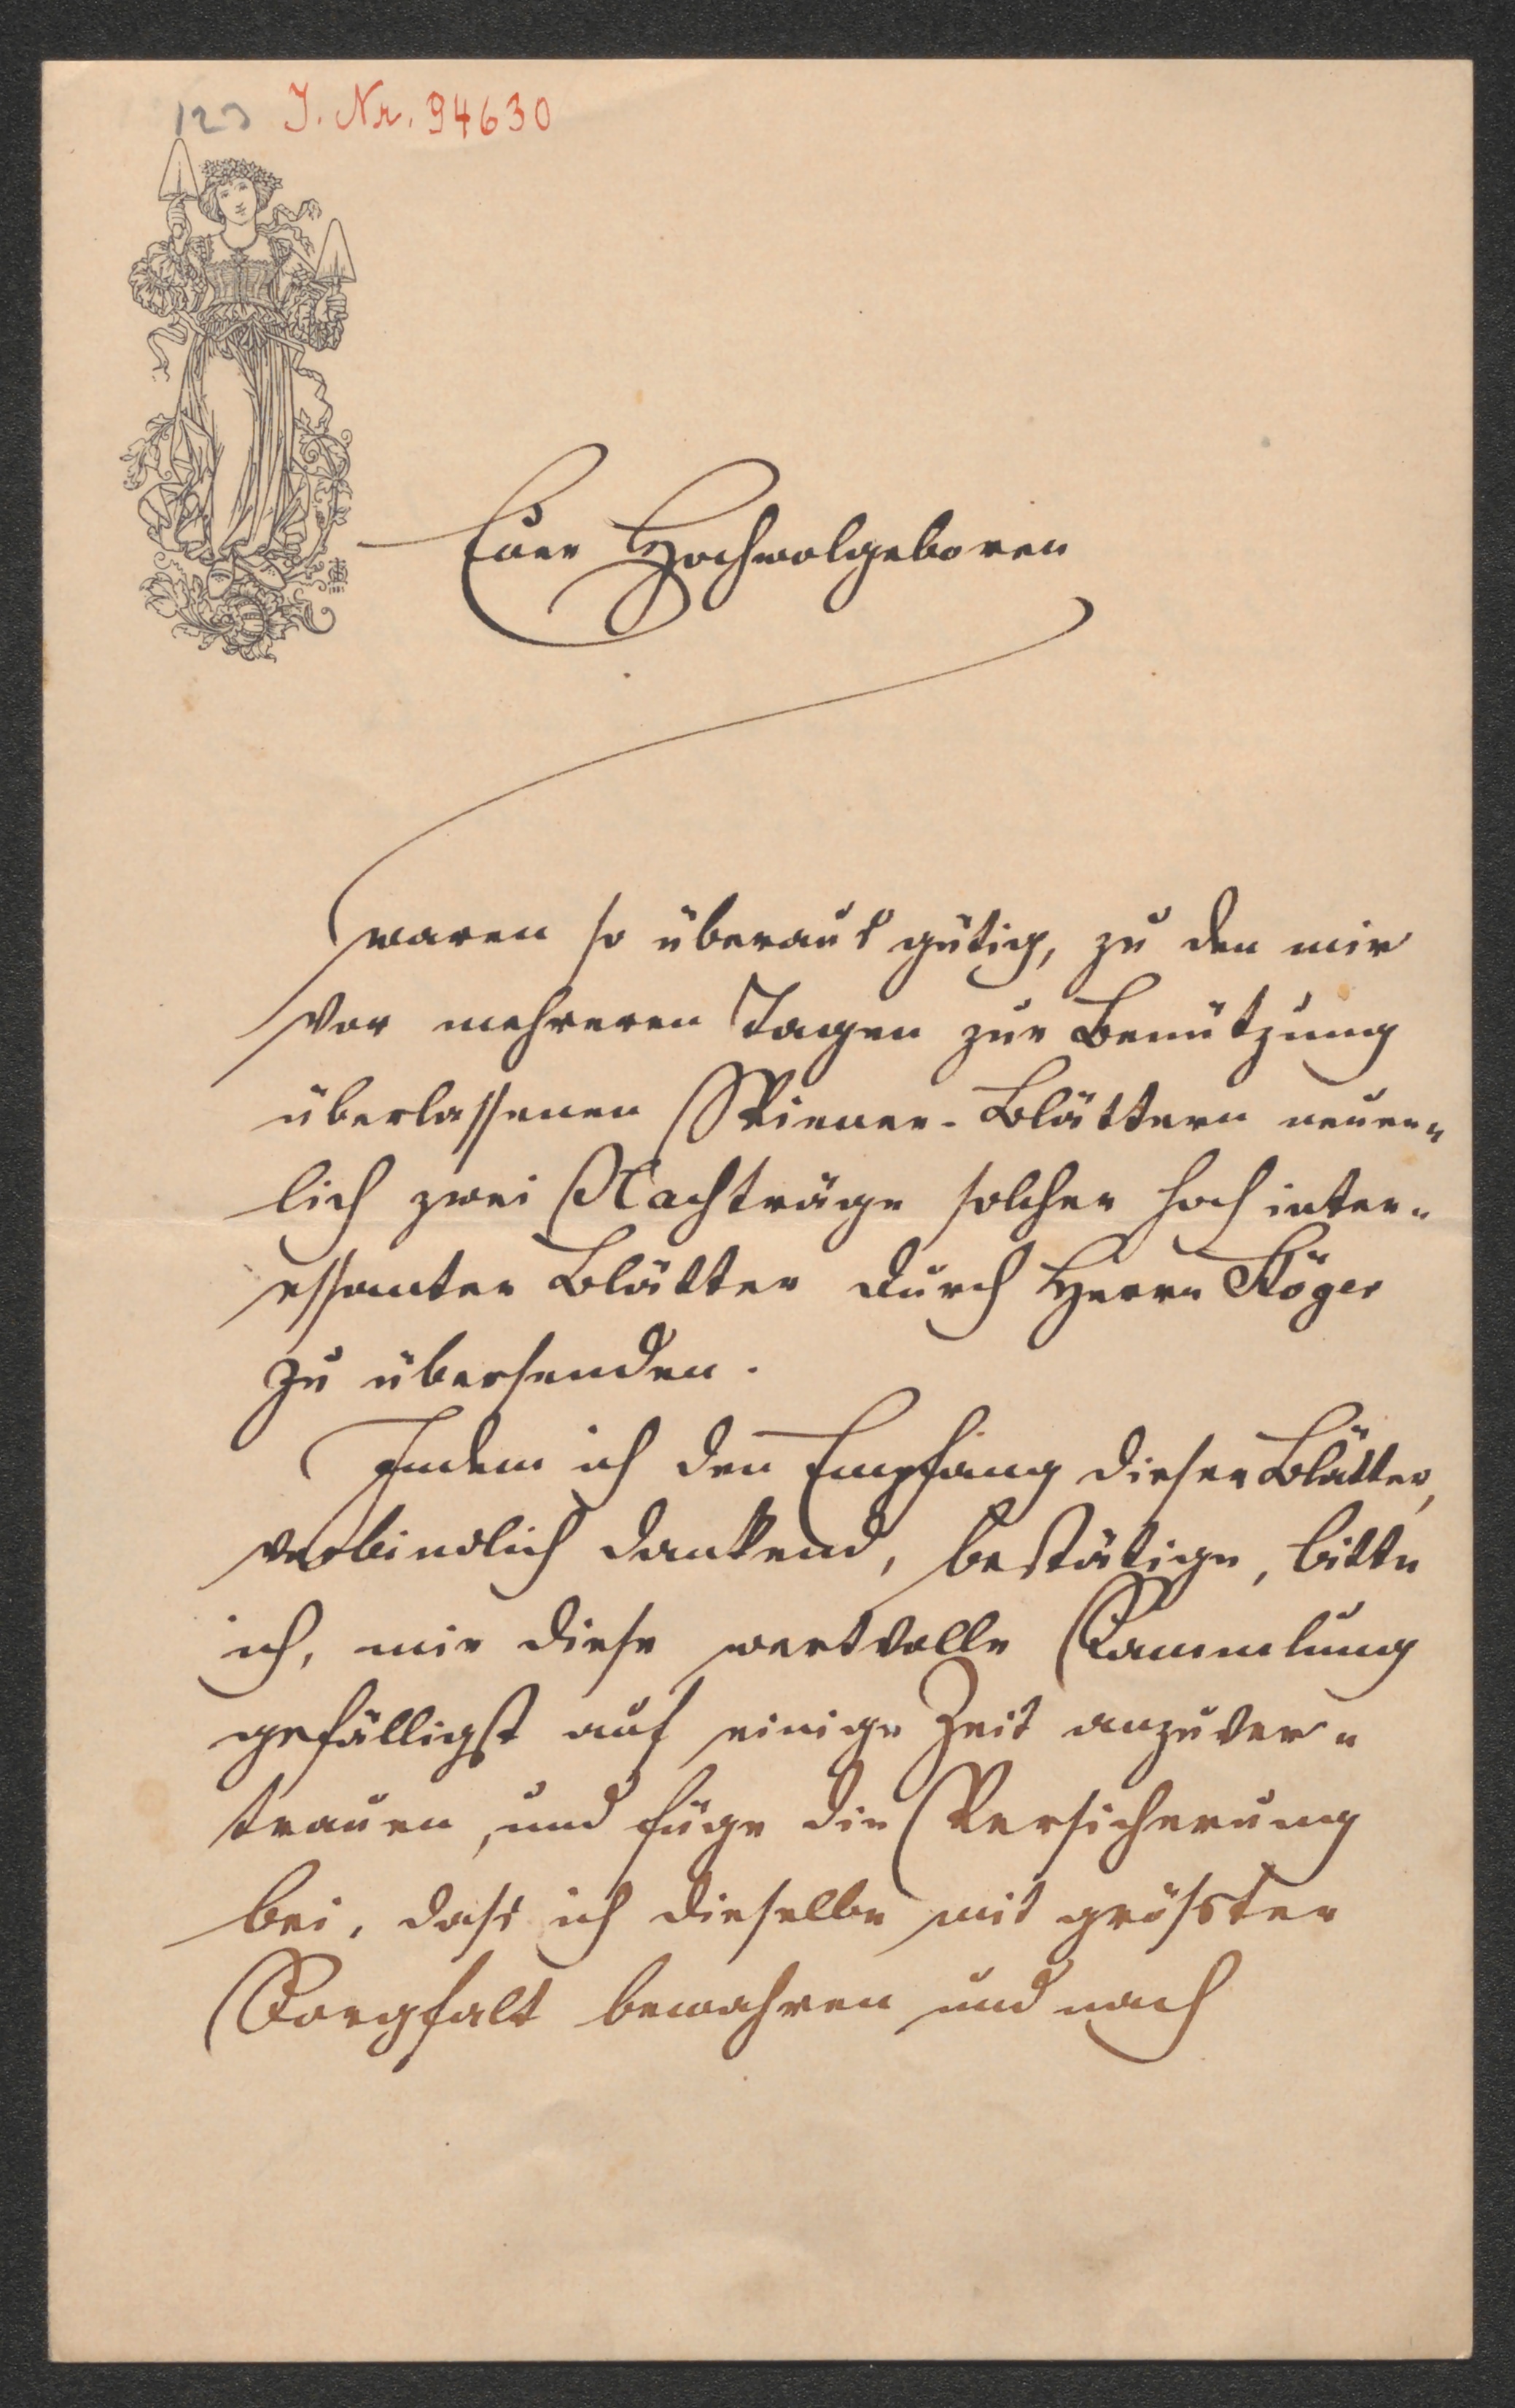 123 J. Nr. 94630
Euer Hochwolgeboren
waren so überaus gütig, zu den mir
vor mehreren Tagen zur Benützung
überlassenen Wiener-Blättern neuer-
lich zwei Nachträge solcher hoch inter-
essanter Blätter durch Herrn Röger
zu übersenden.
Indem ich den Empfang dieser Blätter,
verbindlich dankend, bestätige, bitte
ich, mir diese wertvolle Sammlung
gefälligst auf einige Zeit anzuver-
trauen, und füge die Versicherung
bei, dass ich dieselbe mit grösster
Sorgfalt bewahren und nach